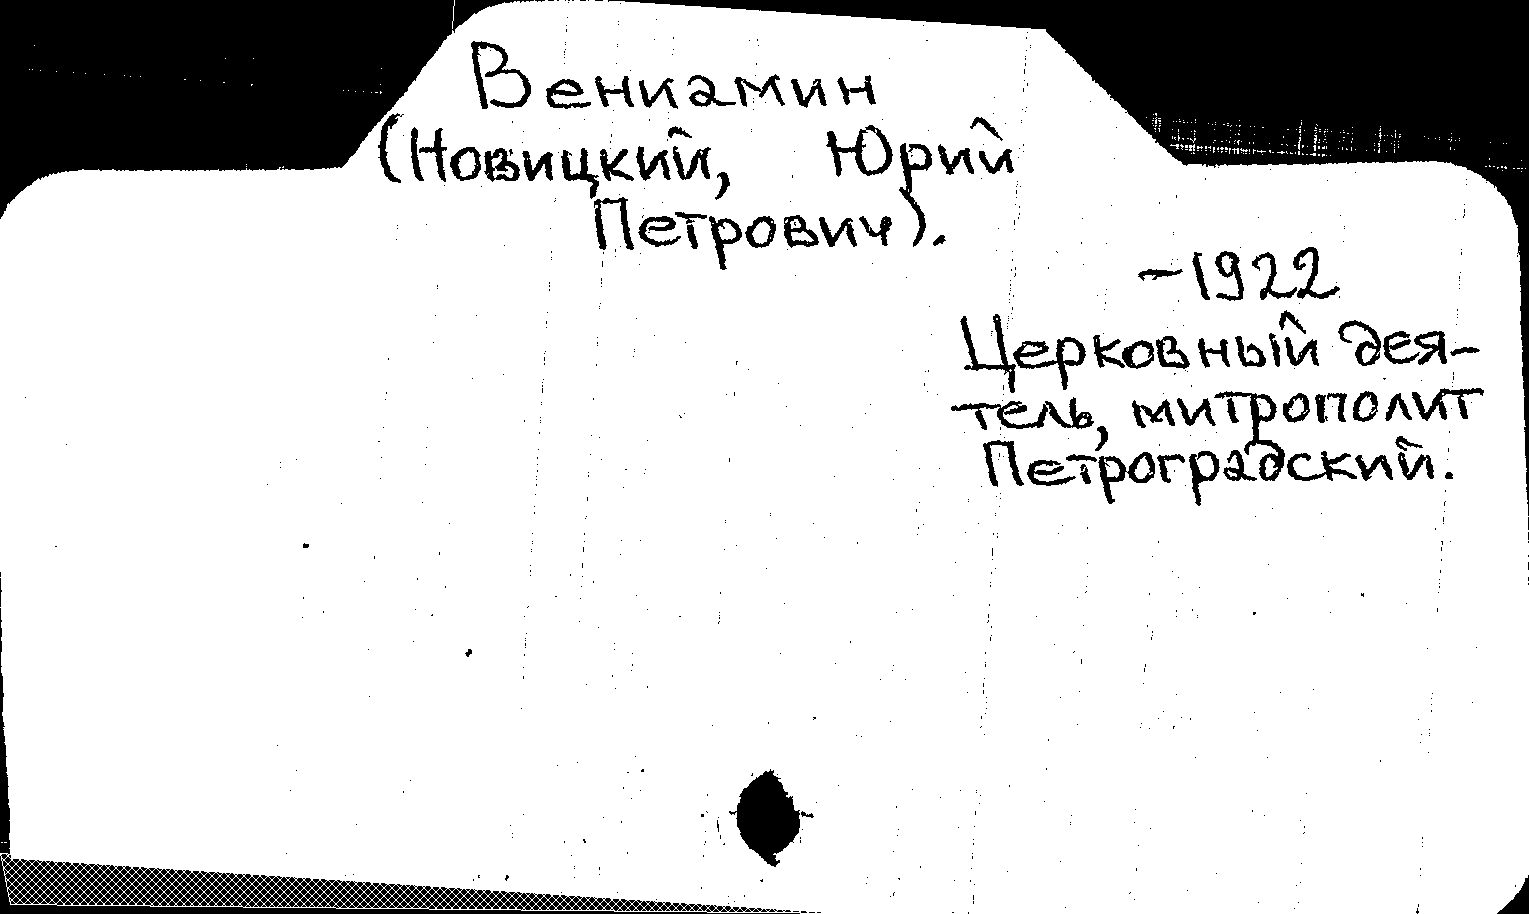 Вениамин
(Новицкий, Юрий
Петрович).
-1922
Церковный дея-
тель, митрополит
Петроградский.